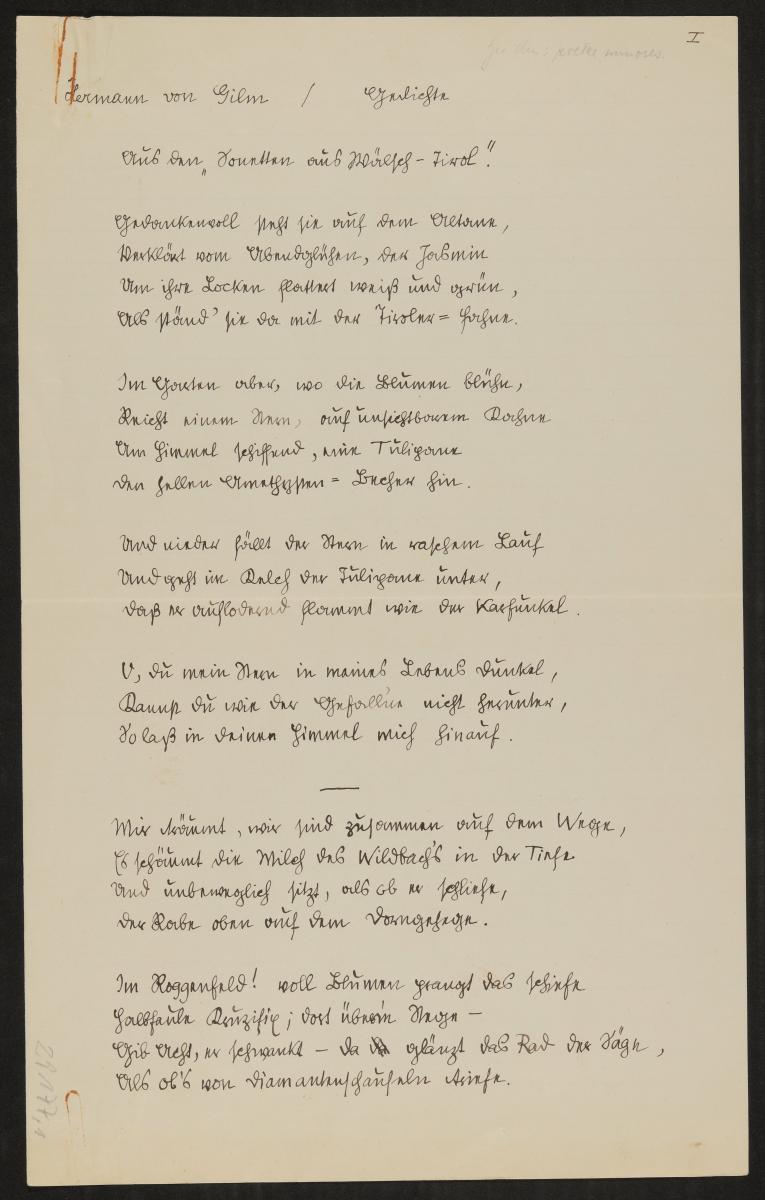 I
Hermann von Gilm / Gedichte
Aus den „Sonetten aus Wälsch-Tirol".
Gedankenvoll steht sie auf dem Altane,
Verklärt vom Abendglühen, der Jasmin
Um ihre Locken flattert weiß und grün,
Als ständ' sie da mit der Tiroler=fahne.
Im Garten aber, wo die Blumen blühn,
Reicht einem Stern, auf unsichtbarem Kahne
Am Himmel schiffend, eine Tulipane
den hellen Amethysten=Becher hin.
Und nieder fällt der Stern in raschem Lauf
Und geht im Kelch der Tulipane unter,
daß er auflodernd flammt wie der Karfunkel.
O, du mein Stern in meines Lebens Dunkel,
Kannst du wie der Gefall'ne nicht herunter,
So laß in deinen Himmel mich hinauf.
Mir träumt, wir sind zusammen auf dem Wege,
Es schäumt die Milch des Wildbach's in der Tiefe
Und unbeweglich sitzt, als ob er schliefe,
der Rabe oben auf dem Dorngehege.
Im Roggenfeld! voll Blumen prangt das schiefe
Halbfaule Kruzifix; dort über'n Stege —
Gib Acht, er schwankt — da glänzt das Rad der Säge,
Als ob's von Diamantenschaufeln triefe.